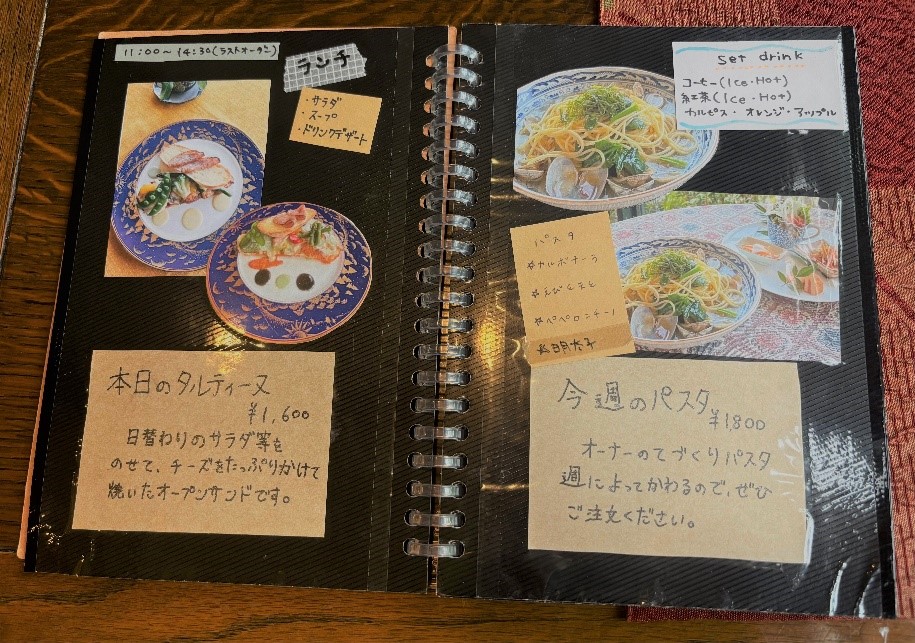 11:00～14:30(ラストオーダー)
ランチ
・サラダ
・スープ
・ドリンクデザート
本日のタルティーヌ
¥1,600
日替わりのサラダ等を
のせて、チーズをたっぷりかけて
焼いたオープンサンドです。
Set drink
コーヒー(Ice・Hot)
紅茶(Ice・Hot)
カルピス オレンジ・アップル
パスタ
*カルボナーラ
*えびとまと
*ペペロンチーノ
*明太子
今週のパスタ
¥1,800
オーナーのてづくりパスタ
週によってかわるので、ぜひ
ご注文ください。